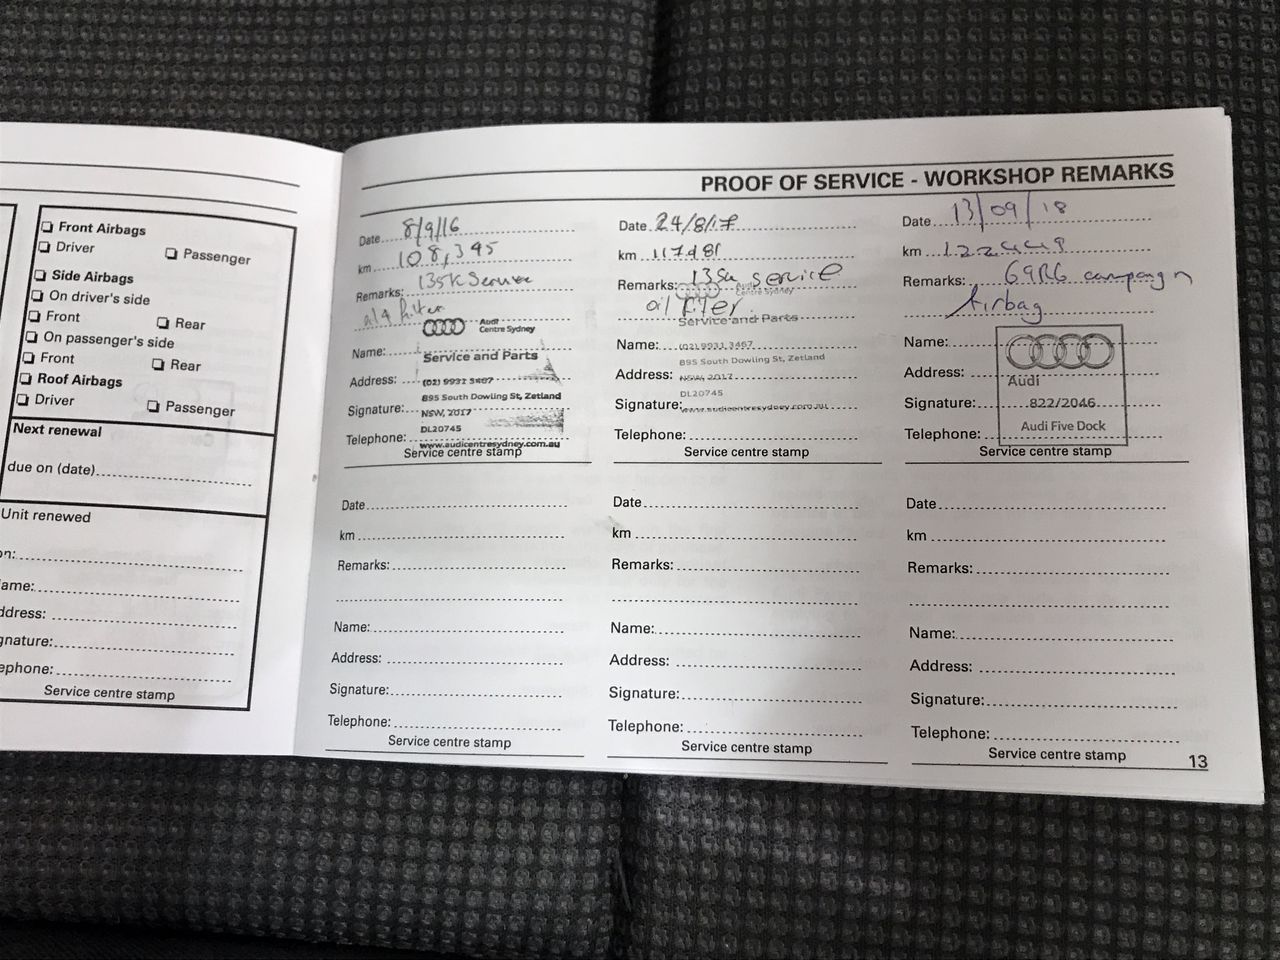 Front Airbags
Driver Passenger
Side Airbags
On driver's side
Front Rear
On passenger's side
Front Rear
Roof Airbags
Driver Passenger
Next renewal
due on (date)
Unit renewed
on:
ame:
ddress:
gnature:
ephone:
Service centre stamp
PROOF OF SERVICE - WORKSHOP REMARKS
Date 8/9/16
km 108,395
Remarks: 135K Service
filter
Audi
Centre Sydney
Name:
Service and Parts
Address: (02) 9931 3467
895 South Dowling St, Zetland
Signature: NSW, 2017
DL20745
Telephone: www.audicentresydney.com.au
Service centre stamp
Date 24/8/17
km
Remarks: service
Audi
Centre Sydney
oil filter
Service and Parts
Name: (02) 9931 3467
895 South Dowling St, Zetland
Address: NSW 2017
DL20745
Signature: www.audicentresydney.com.au
Telephone:
Service centre stamp
Date 13/09/18
km 122449
Remarks: 69R6 campaign
Airbag
Name:
Address: Audi
Signature: 822/2046
Audi Five Dock
Telephone:
Service centre stamp
Date
km
Remarks:
Name:
Address:
Signature:
Telephone:
Service centre stamp
Date
km
Remarks:
Name:
Address:
Signature:
Telephone:
Service centre stamp
Date
km
Remarks:
Name:
Address:
Signature:
Telephone:
Service centre stamp
13